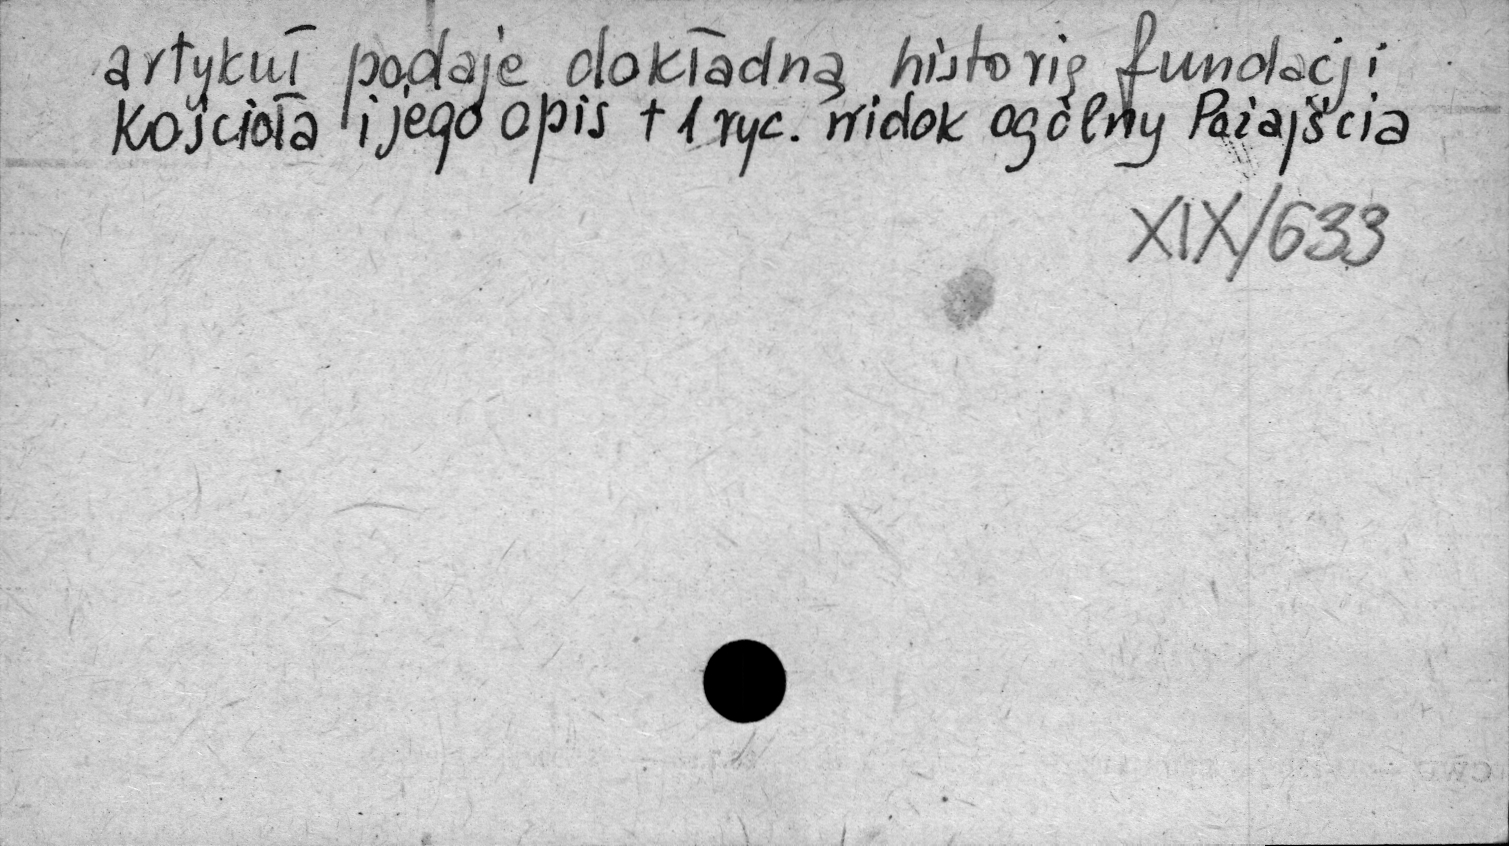 artykuł podaje dokładną historię fundacji
kościoła i jego opis + 1 ryc. widok ogólny Pażajścia
XIX/633